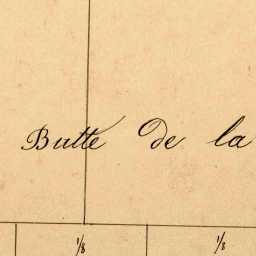 Butte de la
1/8 1/8